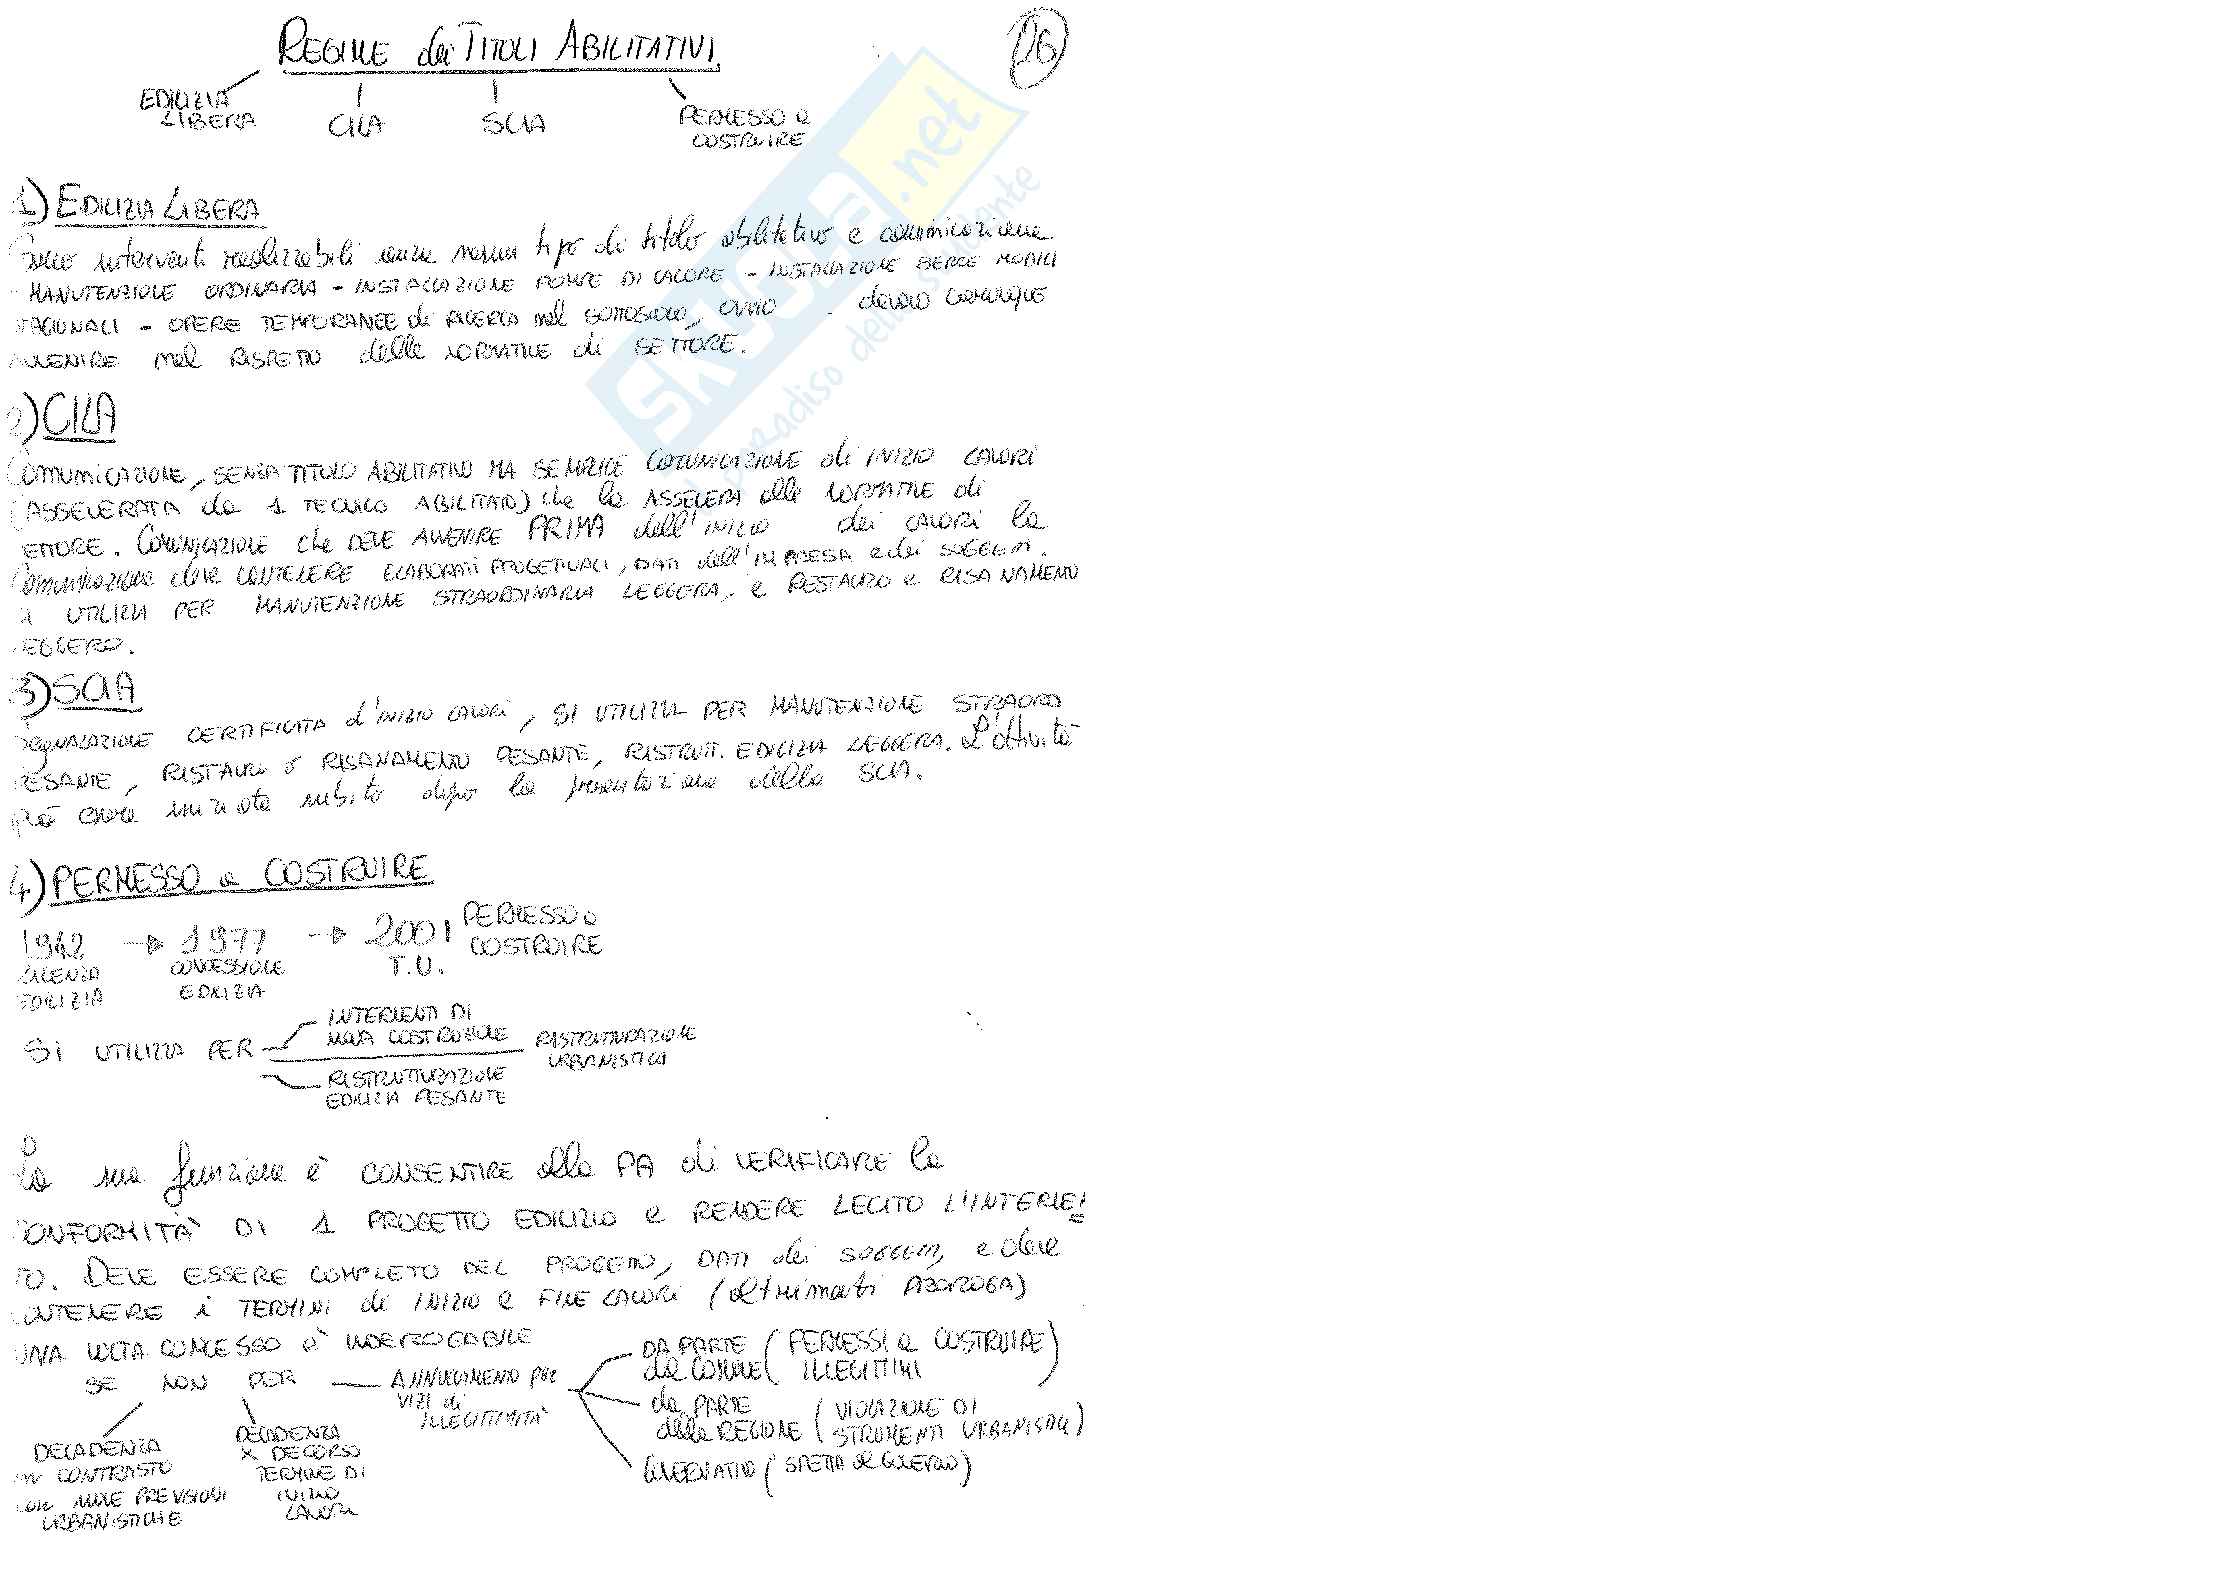 REGIME dei TITOLI ABILITATIVI
16
EDILIZIA LIBERA
CILA
SCIA
PERMESSO a COSTRUIRE
1) EDILIZIA LIBERA
Sono interventi realizzabili senza nessun tipo di titolo abilitativo e comunicazione
MANUTENZIONE ORDINARIA - INSTALLAZIONE POMPE DI CALORE - INSTALLAZIONE SERRE MOBILI
STAGIONALI - OPERE TEMPORANEE di RICERCA nel SOTTOSUOLO, OVVIO devono COMUNQUE
AVVENIRE nel RISPETTO delle NORMATIVE di SETTORE.
2) CILA
COMUNICAZIONE, SENZA TITOLO ABILITATIVO MA SEMPLICE COMUNICAZIONE di INIZIO LAVORI
(ASSEVERATA da 1 TECNICO ABILITATO) che la ASSEVERA alle NORMATIVE di
SETTORE. COMUNICAZIONE che DEVE AVVENIRE PRIMA dell'INIZIO dei LAVORI la
Comunicazione deve CONTENERE ELABORATI PROGETTUALI, DATI dell'IMPRESA e dei SOGGETTI.
Si UTILIZZA PER MANUTENZIONE STRAORDINARIA LEGGERA, e RESTAURO e RISANAMENTO
LEGGERO.
3) SCIA
SEGNALAZIONE CERTIFICATA d'INIZIO LAVORI, SI UTILIZZA PER MANUTENZIONE STRAORD
PESANTE, RISTAURO o RISANAMENTO PESANTE, RISTRUT. EDILIZIA LEGGERA. L'attività
può essere iniziata subito dopo la presentazione della SCIA.
4) PERMESSO a COSTRUIRE
1942 → 1977 → 2001 PERMESSO a COSTRUIRE
LICENZA EDILIZIA
CONCESSIONE EDILIZIA
T.U.
SI UTILIZZA PER
INTERVENTI DI NUOVA COSTRUZIONE
RISTRUTTURAZIONE URBANISTICA
RISTRUTTURAZIONE EDILIZIA PESANTE
La sua funzione è CONSENTIRE alla PA di VERIFICARE la
CONFORMITÀ DI 1 PROGETTO EDILIZIO e RENDERE LECITO L'INTERVEN
TO. DEVE ESSERE COMPLETO DEL PROGETTO, DATI dei SOGGETTI, e deve
CONTENERE i TERMINI di INIZIO e FINE LAVORI (altrimenti PROROGA)
UNA VOLTA CONCESSO è INDEROGABILE
SE NON PER
ANNULLAMENTO per VIZI di ILLEGITTIMITÀ
DA PARTE del COMUNE (PERMESSI a COSTRUIRE ILLEGITTIMI)
da PARTE della REGIONE (VIOLAZIONE DI STRUMENTI URBANISTICI)
GOVERNATIVO (SPETTA al GOVERNO)
DECADENZA in CONTRASTO con NUOVE PREVISIONI URBANISTICHE
DECADENZA X DECORSO TERMINE DI INIZIO LAVORI
SKUOLA.net
il paradiso dello studente